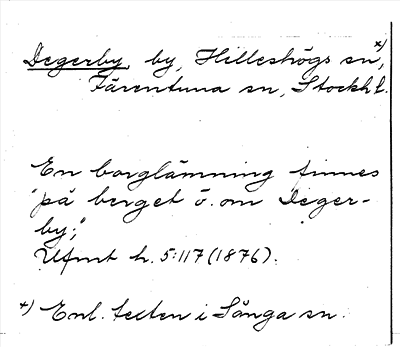 Degerby, by, Hilleshögs sn, x)
Färentuna sn, Stockh l.
En borglämning finnes
"på berget ö. om Deger-
by;"
Ufmt h. 5:117 (1876).
x) Enl. texten i Sånga sn.